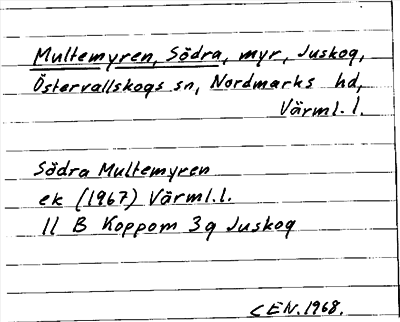 Multemyren, Södra, myr, Juskog,
Östervallskogs sn, Nordmarks hd,
Värml. l.
Södra Multemyren
ek (1967) Värml.l.
11 B Koppom 3g Juskog
CEN.1968.